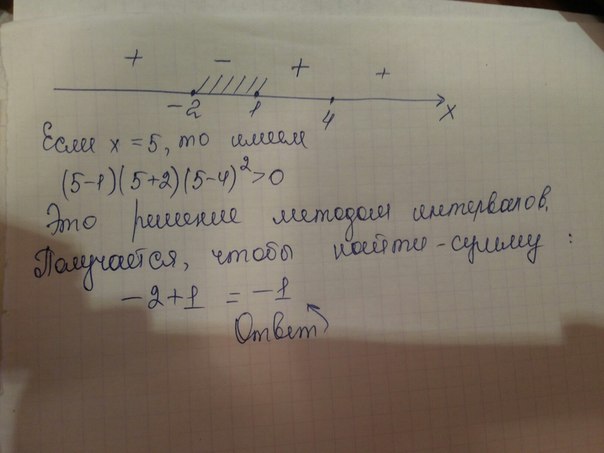 + - + +
-2 1 4 x
Если x = 5, то имеем
(5-1)(5+2)(5-4)²>0
Это решение методом интервалов.
Получается, чтобы найти - сумму :
-2+1 = -1
Ответ